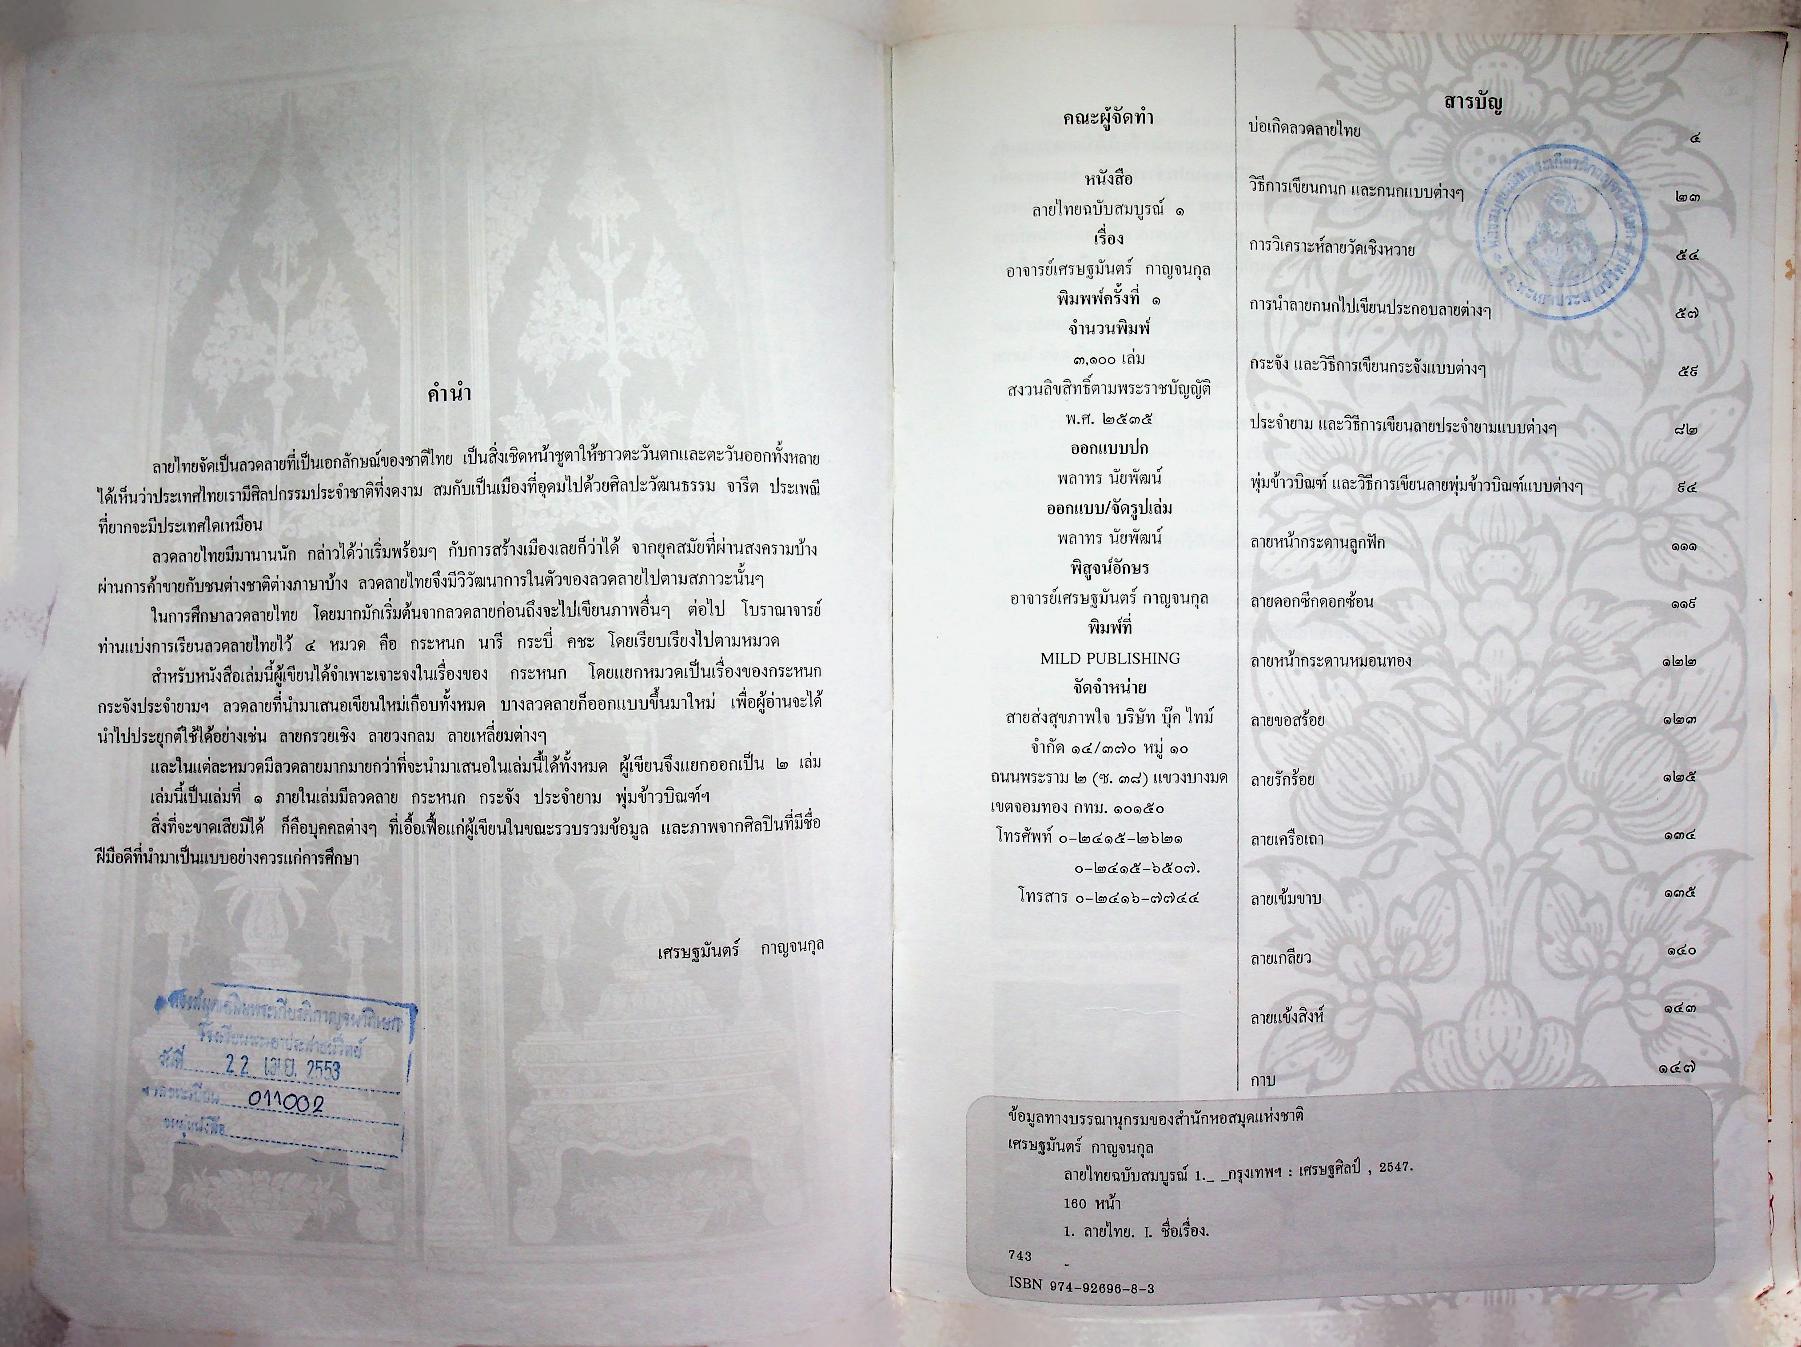 คำนำ
ลายไทยจัดเป็นลวดลายที่เป็นเอกลักษณ์ของชาติไทย เป็นสิ่งเชิดหน้าชูตาให้ชาวตะวันตกและตะวันออกทั้งหลาย
ได้เห็นว่าประเทศไทยเรามีศิลปกรรมประจำชาติที่งดงาม สมกับเป็นเมืองที่อุดมไปด้วยศิลปะวัฒนธรรม จารีต ประเพณี
ที่ยากจะมีประเทศใดเหมือน
ลวดลายไทยมีมานานนัก กล่าวได้ว่าเริ่มพร้อมๆ กับการสร้างเมืองเลยก็ว่าได้ จากยุคสมัยที่ผ่านสงครามบ้าง
ผ่านการค้าขายกับชนต่างชาติต่างภาษาบ้าง ลวดลายไทยจึงมีวิวัฒนาการในตัวของลวดลายไปตามสภาวะนั้นๆ
ในการศึกษาลวดลายไทย โดยมากมักเริ่มต้นจากลวดลายก่อนถึงจะไปเขียนภาพอื่นๆ ต่อไป โบราณาจารย์
ท่านแบ่งการเรียนลวดลายไทยไว้ ๔ หมวด คือ กระหนก นารี กระบี่ คชะ โดยเรียบเรียงไปตามหมวด
สำหรับหนังสือเล่มนี้ผู้เขียนได้จำเพาะเจาะจงในเรื่องของ กระหนก โดยแยกหมวดเป็นเรื่องของกระหนก
กระจังประจำยามฯ ลวดลายที่นำมาเสนอเขียนใหม่เกือบทั้งหมด บางลวดลายก็ออกแบบขึ้นมาใหม่ เพื่อผู้อ่านจะได้
นำไปประยุกต์ใช้ได้อย่างเช่น ลายกรวยเชิง ลายวงกลม ลายเหลี่ยมต่างๆ
และในแต่ละหมวดมีลวดลายมากมายกว่าที่จะนำมาเสนอในเล่มนี้ได้ทั้งหมด ผู้เขียนจึงแยกออกเป็น ๒ เล่ม
เล่มนี้เป็นเล่มที่ ๑ ภายในเล่มมีลวดลาย กระหนก กระจัง ประจำยาม พุ่มข้าวบิณฑ์ฯ
สิ่งที่จะขาดเสียมิได้ ก็คือบุคคลต่างๆ ที่เอื้อเฟื้อแก่ผู้เขียนในขณะรวบรวมข้อมูล และภาพจากศิลปินที่มีชื่อ
ฝีมือดีที่นำมาเป็นแบบอย่างควรแก่การศึกษา
เศรษฐมันตร์ กาญจนกุล
วันที่ 22 เม.ย. 2553
011002
คณะผู้จัดทำ
หนังสือ
ลายไทยฉบับสมบูรณ์ ๑
เรื่อง
อาจารย์เศรษฐมันตร์ กาญจนกุล
พิมพ์ครั้งที่ ๑
จำนวนพิมพ์
๓,๑๐๐ เล่ม
สงวนลิขสิทธิ์ตามพระราชบัญญัติ
พ.ศ. ๒๕๓๕
ออกแบบปก
พลาทร นัยพัฒน์
ออกแบบ/จัดรูปเล่ม
พลาทร นัยพัฒน์
พิสูจน์อักษร
อาจารย์เศรษฐมันตร์ กาญจนกุล
พิมพ์ที่
MILD PUBLISHING
จัดจำหน่าย
สายส่งสุขภาพใจ บริษัท บุ๊ค ไทม์
จำกัด ๑๔/๓๗๐ หมู่ ๑๐
ถนนพระราม ๒ (ซ. ๓๘) แขวงบางมด
เขตจอมทอง กทม. ๑๐๑๕๐
โทรศัพท์ ๐-๒๔๑๕-๒๖๒๑
๐-๒๔๑๕-๖๕๐๗.
โทรสาร ๐-๒๔๑๖-๗๗๔๔
สารบัญ
บ่อเกิดลวดลายไทย ๔
วิธีการเขียนกนก และกนกแบบต่างๆ ๒๓
การวิเคราะห์ลายวัดเชิงหวาย ๕๔
การนำลายกนกไปเขียนประกอบลายต่างๆ ๕๗
กระจัง และวิธีการเขียนกระจังแบบต่างๆ ๕๙
ประจำยาม และวิธีการเขียนลายประจำยามแบบต่างๆ ๘๒
พุ่มข้าวบิณฑ์ และวิธีการเขียนลายพุ่มข้าวบิณฑ์แบบต่างๆ ๙๔
ลายหน้ากระดานลูกฟัก ๑๑๑
ลายดอกซีกดอกซ้อน ๑๑๙
ลายหน้ากระดานหมอนทอง ๑๒๒
ลายขอสร้อย ๑๒๓
ลายรักร้อย ๑๒๕
ลายเครือเถา ๑๓๔
ลายเข้มขาบ ๑๓๕
ลายเกลียว ๑๔๐
ลายแข้งสิงห์ ๑๔๓
กาบ ๑๔๗
ข้อมูลทางบรรณานุกรมของสำนักหอสมุดแห่งชาติ
เศรษฐมันตร์ กาญจนกุล
ลายไทยฉบับสมบูรณ์ 1._ _กรุงเทพฯ : เศรษฐศิลป์ , 2547.
160 หน้า
1. ลายไทย. I. ชื่อเรื่อง.
743
ISBN 974-92696-8-3